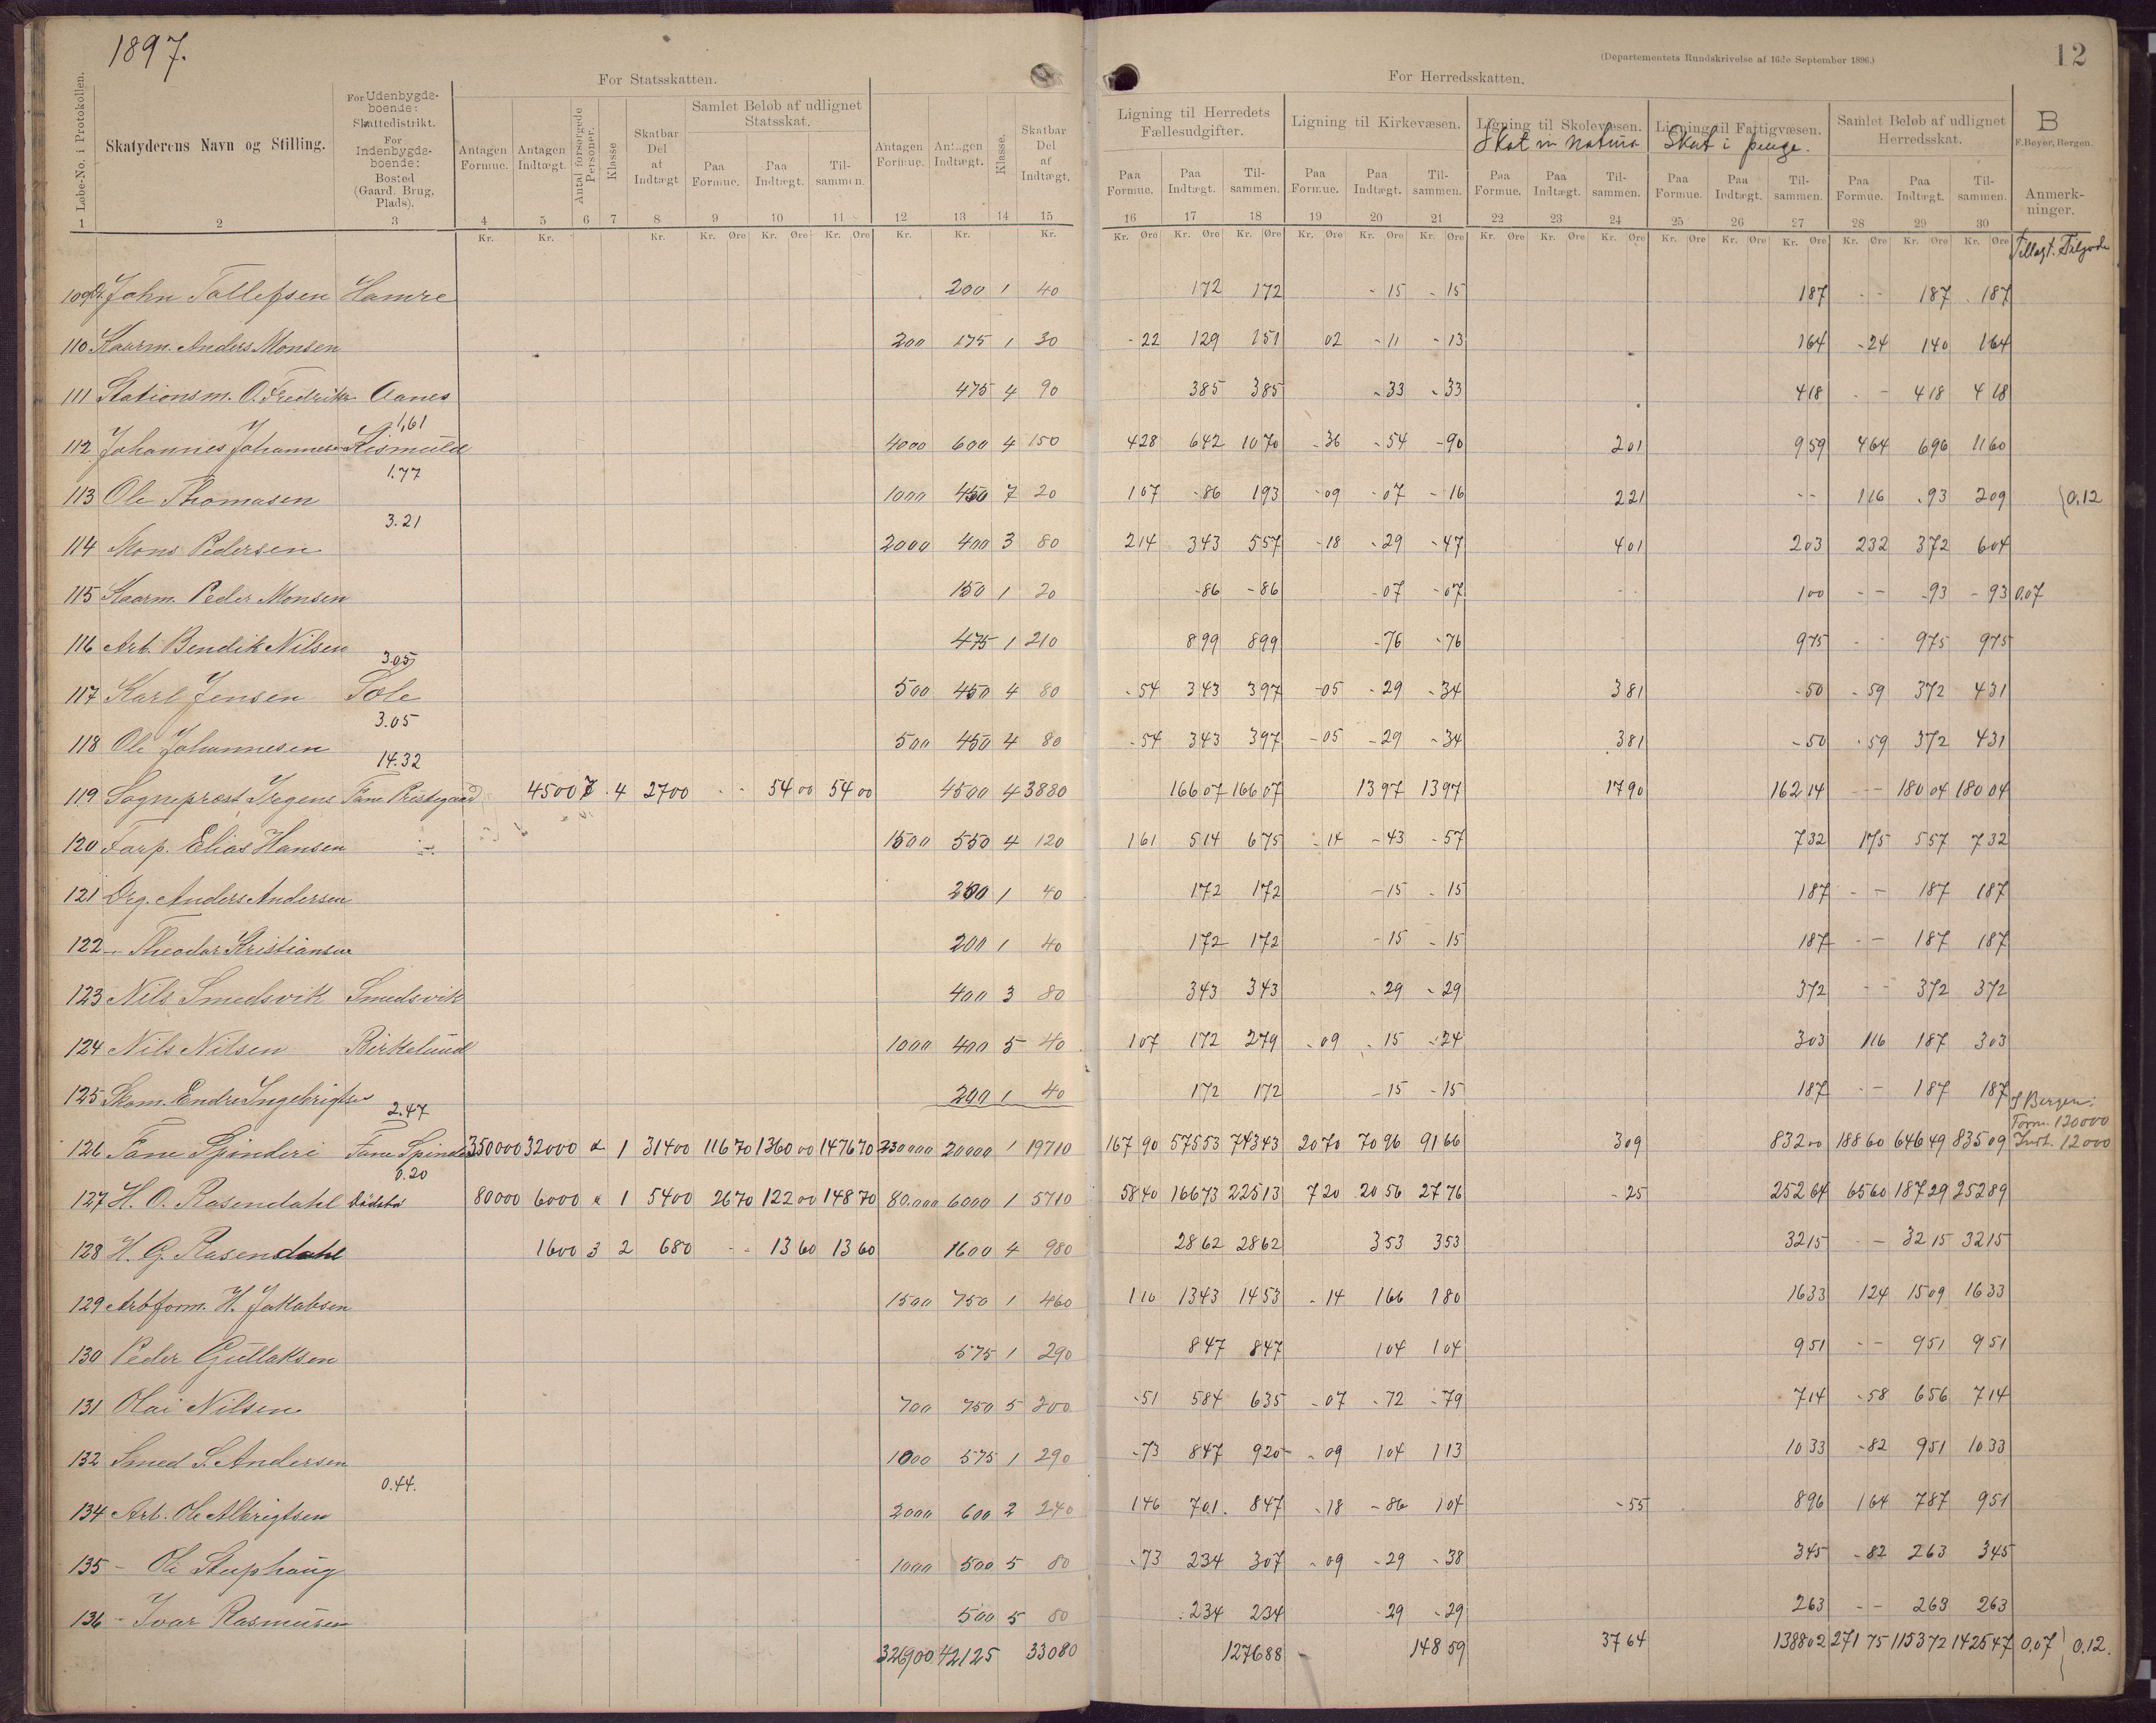 1897.
12
(Departementets Rundskrivelse af 16de September 1896.)
For Statsskatten.
For Herredsskatten.
Løbe-No. i Protokollen.
Skatyderens Navn og Stilling.
For Udenbygds-boende: Skattedistrikt.
For Indenbygds-boende: Bosted (Gaard, Brug, Plads).
Antagen Formue.
Antagen Indtægt.
Antal forsørgede Personer.
Klasse
Skatbar Del af Indtægt
Samlet Beløb af udlignet Statsskat.
Paa Formue. Paa Indtægt. Til-sammen.
Antagen Formue.
Antagen Indtægt.
Klasse.
Skatbar Del af Indtægt.
Ligning til Herredets Fællesudgifter.
Ligning til Kirkevæsen.
Ligning til Skolevæsen.
Skat in natura
Ligning til Fattigvæsen.
Skat i penge.
Samlet Beløb af udlignet Herredsskat.
B
F. Beyer, Bergen.
Anmerk-ninger.
Paa Formue. Paa Indtægt. Til-sammen. Paa Formue. Paa Indtægt. Til-sammen. Paa Formue. Paa Indtægt. Til-sammen. Paa Formue. Paa Indtægt. Til-sammen. Paa Formue. Paa Indtægt. Til-sammen.
1 2 3 4 5 6 7 8 9 10 11 12 13 14 15 16 17 18 19 20 21 22 23 24 25 26 27 28 29 30
Kr. Kr. Kr. Kr. Øre Kr. Øre Kr. Øre Kr. Kr. Kr. Kr. Øre Kr. Øre Kr. Øre Kr. Øre Kr. Øre Kr. Øre Kr. Øre Kr. Øre Kr. Øre Kr. Øre Kr. Øre Kr. Øre Kr. Øre Kr. Øre Kr. Øre
Tillagt. Tilgode
109 John Tollefsen Hamre 200 1 40 172 172 - 15 - 15 187 - - 187 187
110 Kaarm. Anders Monsen 200 175 1 30 - 22 129 151 02 - 11 - 13 164 - 24 140 164
111 Stationsm. O. Fredriks Aanes 475 4 90 385 385 - 33 - 33 418 - - 418 418
1,61
112 Johannes Johannesen Kismuld 4000 600 4 150 428 642 1070 - 36 - 54 - 90 201 959 464 696 1160
1.77
113 Ole Thomasen 1000 450 7 20 107 - 86 193 - 09 - 07 - 16 221 - - 116 - 93 209 0.12
3.21
114 Mons Pedersen 2000 400 3 80 214 343 557 - 18 - 29 - 47 401 203 232 372 604
115 Kaarm. Peder Monsen 150 1 20 - 86 - 86 - 07 - 07 100 - - - 93 - 93 0.07
116 Arb. Bendik Nilsen 475 1 210 899 899 - 76 - 76 975 - - 975 975
3.05
117 Karl Jensen Tole 500 450 4 80 - 54 343 397 - 05 - 29 - 34 381 - 50 - 59 372 431
3.05
118 Ole Johannesen 500 450 4 80 - 54 343 397 - 05 - 29 - 34 381 - 50 - 59 372 431
14.32
119 Sogneprest Irgens Fane Prestegaard 4500 7 4 2700 - - 54 00 54 00 4500 4 3880 166 07 166 07 13 97 13 97 17 90 162 14 - - 180 04 180 04
120 Forp. Elias Hansen -:- 1500 550 4 120 161 514 675 - 14 - 43 - 57 732 175 557 732
121 Drg. Anders Andersen 200 1 40 172 172 - 15 - 15 187 - - 187 187
122 - Theodor Kristiansen 200 1 40 172 172 - 15 - 15 187 - - 187 187
123 Nils Smedsvik Smedsvik 400 3 80 343 343 - 29 - 29 372 - - 372 372
124 Nils Nilsen Birkelund 1000 400 5 40 107 172 279 - 09 - 15 - 24 303 116 187 303
125 Skom. Endre Ingebrigtsen 200 1 40 172 172 - 15 - 15 187 - - 187 187
2.47
I Bergen:
Form. 120000
126 Fane Spinderi Fane Spinderi 350000 32000 " 1 31400 116 70 1360 00 1476 70 230000 20000 1 19710 167 90 575 53 743 43 20 70 70 96 91 66 3 09 832 00 188 60 646 49 835 09 Indt. 12000
0.20
127 H. O. Rosendahl Dødsbo 80000 6000 " 1 5400 26 70 122 00 148 70 80.000 6000 1 5710 58 40 166 73 225 13 7 20 20 56 27 76 - 25 252 64 65 60 187 29 252 89
128 H. G. Rosendahl 1600 3 2 680 - - 13 60 13 60 1600 4 980 28 62 28 62 3 53 3 53 32 15 - - 32 15 32 15
129 Arbform. H. Jakobsen 1500 750 1 460 110 1343 1453 - 14 166 180 1633 124 1509 1633
130 Peder Gullaksen 575 1 290 847 847 104 104 951 - - 951 951
131 Olai Nilsen 700 750 5 200 - 51 584 635 - 07 - 72 - 79 714 - 58 656 714
132 Smed S. Andersen 1000 575 1 290 - 73 847 920 - 09 104 113 1033 - 82 951 1033
0.44.
134 Arb. Ole Albrigtsen 2000 600 2 240 146 701 847 - 18 - 86 104 - 55 896 164 787 951
135 - Ole Stuphaug 1000 500 5 80 - 73 234 307 - 09 - 29 - 38 345 - 82 263 345
136 - Ivar Rasmusen 500 5 80 234 234 - 29 - 29 263 - - 263 263
326900 42125 33080 1276 88 148 59 37 64 1388 02 271 75 1153 72 1425 47 0.07 0.12.